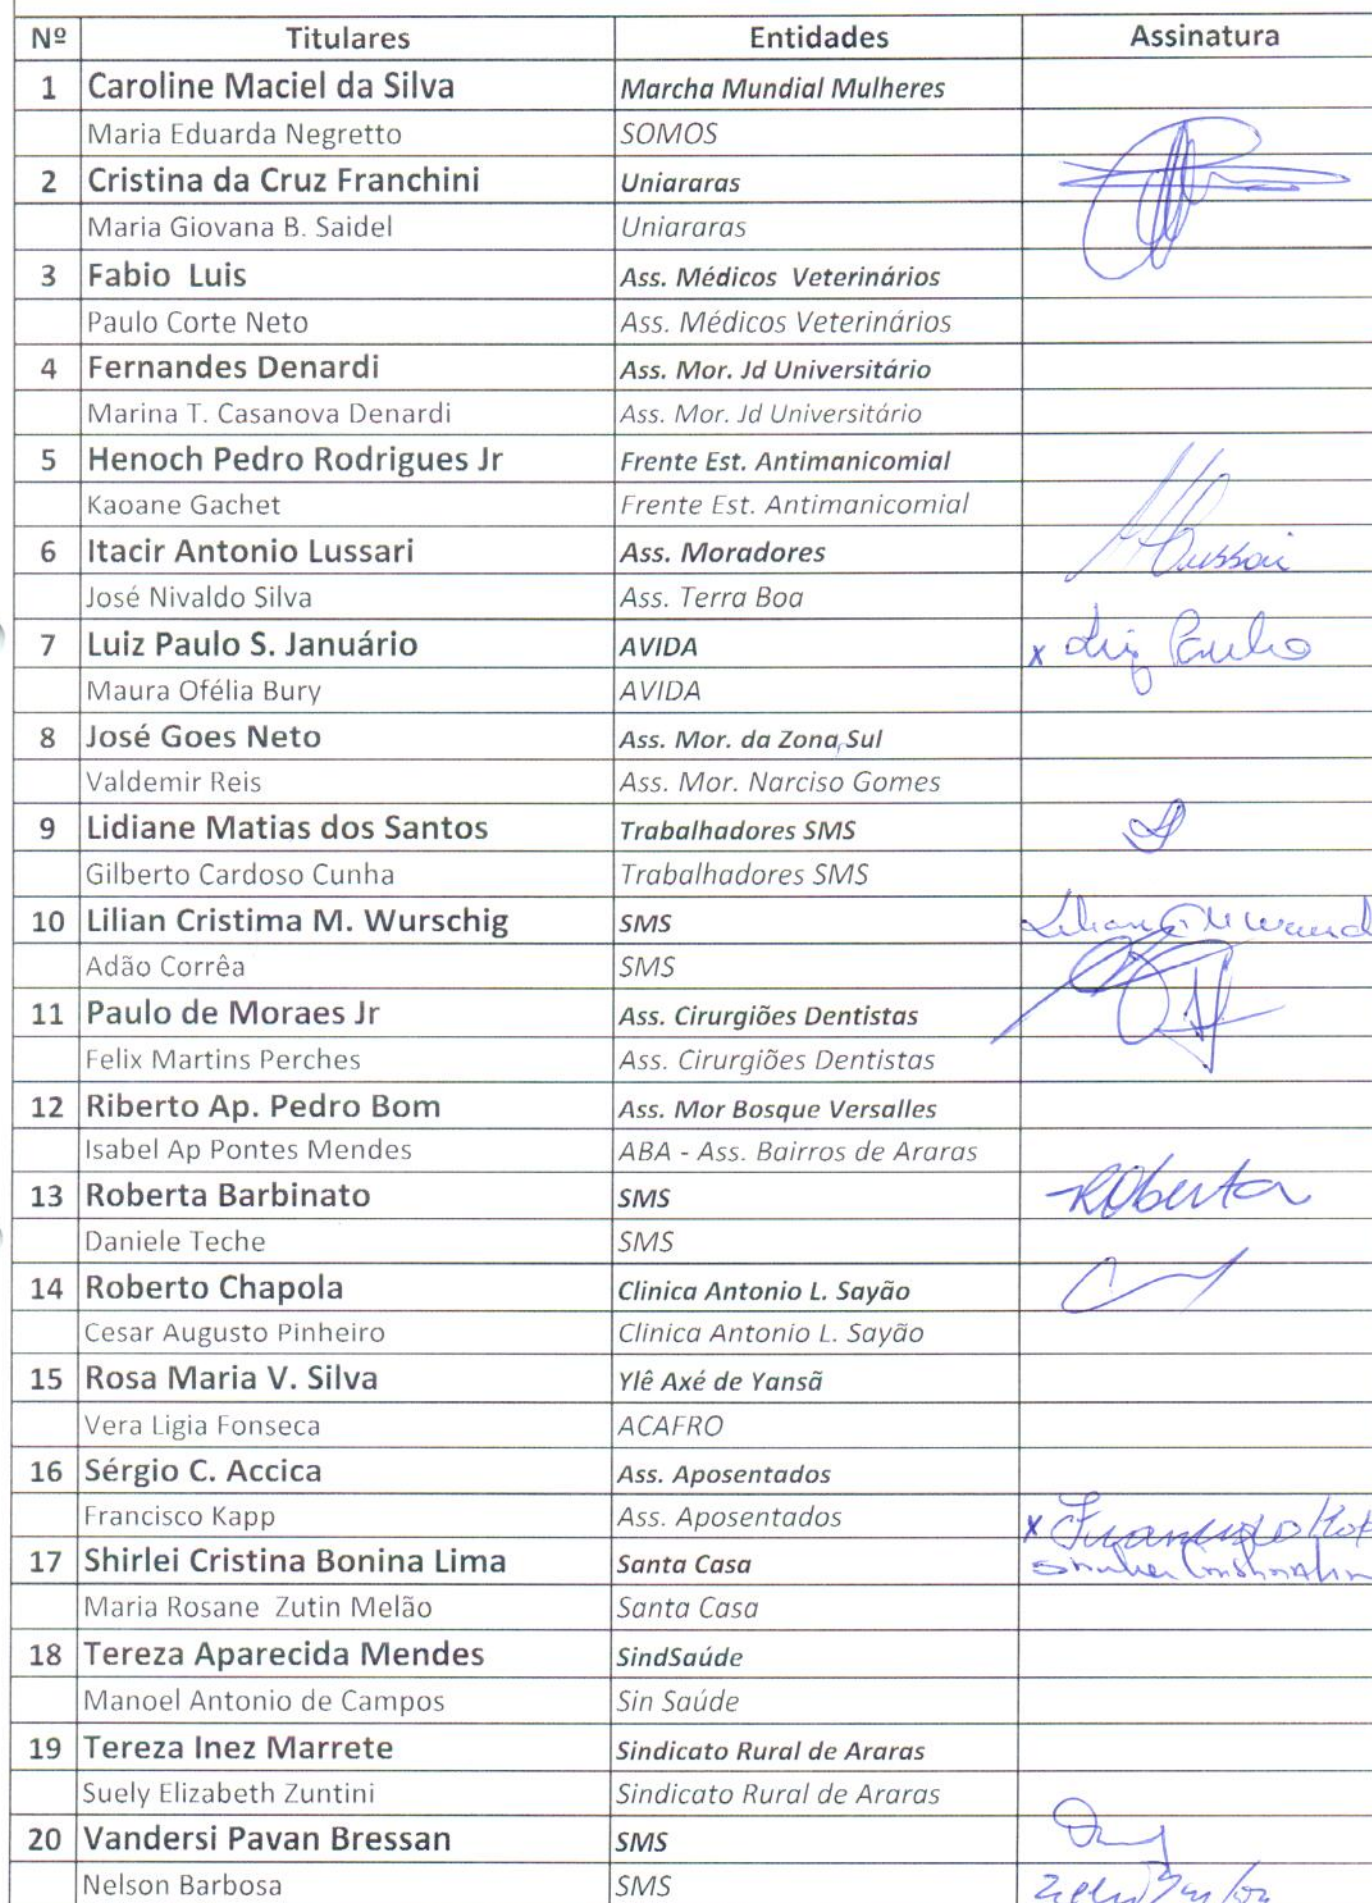 Nº Titulares Entidades Assinatura
1 Caroline Maciel da Silva Marcha Mundial Mulheres
Maria Eduarda Negretto SOMOS
2 Cristina da Cruz Franchini Uniararas
Maria Giovana B. Saidel Uniararas
3 Fabio Luis Ass. Médicos Veterinários
Paulo Corte Neto Ass. Médicos Veterinários
4 Fernandes Denardi Ass. Mor. Jd Universitário
Marina T. Casanova Denardi Ass. Mor. Jd Universitário
5 Henoch Pedro Rodrigues Jr Frente Est. Antimanicomial
Kaoane Gachet Frente Est. Antimanicomial
6 Itacir Antonio Lussari Ass. Moradores
José Nivaldo Silva Ass. Terra Boa
7 Luiz Paulo S. Januário AVIDA x Luiz Paulo
Maura Ofélia Bury AVIDA
8 José Goes Neto Ass. Mor. da Zona Sul
Valdemir Reis Ass. Mor. Narciso Gomes
9 Lidiane Matias dos Santos Trabalhadores SMS
Gilberto Cardoso Cunha Trabalhadores SMS
10 Lilian Cristima M. Wurschig SMS
Adão Corrêa SMS
11 Paulo de Moraes Jr Ass. Cirurgiões Dentistas
Felix Martins Perches Ass. Cirurgiões Dentistas
12 Riberto Ap. Pedro Bom Ass. Mor Bosque Versalles
Isabel Ap Pontes Mendes ABA - Ass. Bairros de Araras
13 Roberta Barbinato SMS Roberta
Daniele Teche SMS
14 Roberto Chapola Clinica Antonio L. Sayão
Cesar Augusto Pinheiro Clinica Antonio L. Sayão
15 Rosa Maria V. Silva Ylê Axé de Yansã
Vera Ligia Fonseca ACAFRO
16 Sérgio C. Accica Ass. Aposentados
Francisco Kapp Ass. Aposentados x Francisco
17 Shirlei Cristina Bonina Lima Santa Casa
Maria Rosane Zutin Melão Santa Casa
18 Tereza Aparecida Mendes SindSaúde
Manoel Antonio de Campos Sin Saúde
19 Tereza Inez Marrete Sindicato Rural de Araras
Suely Elizabeth Zuntini Sindicato Rural de Araras
20 Vandersi Pavan Bressan SMS
Nelson Barbosa SMS